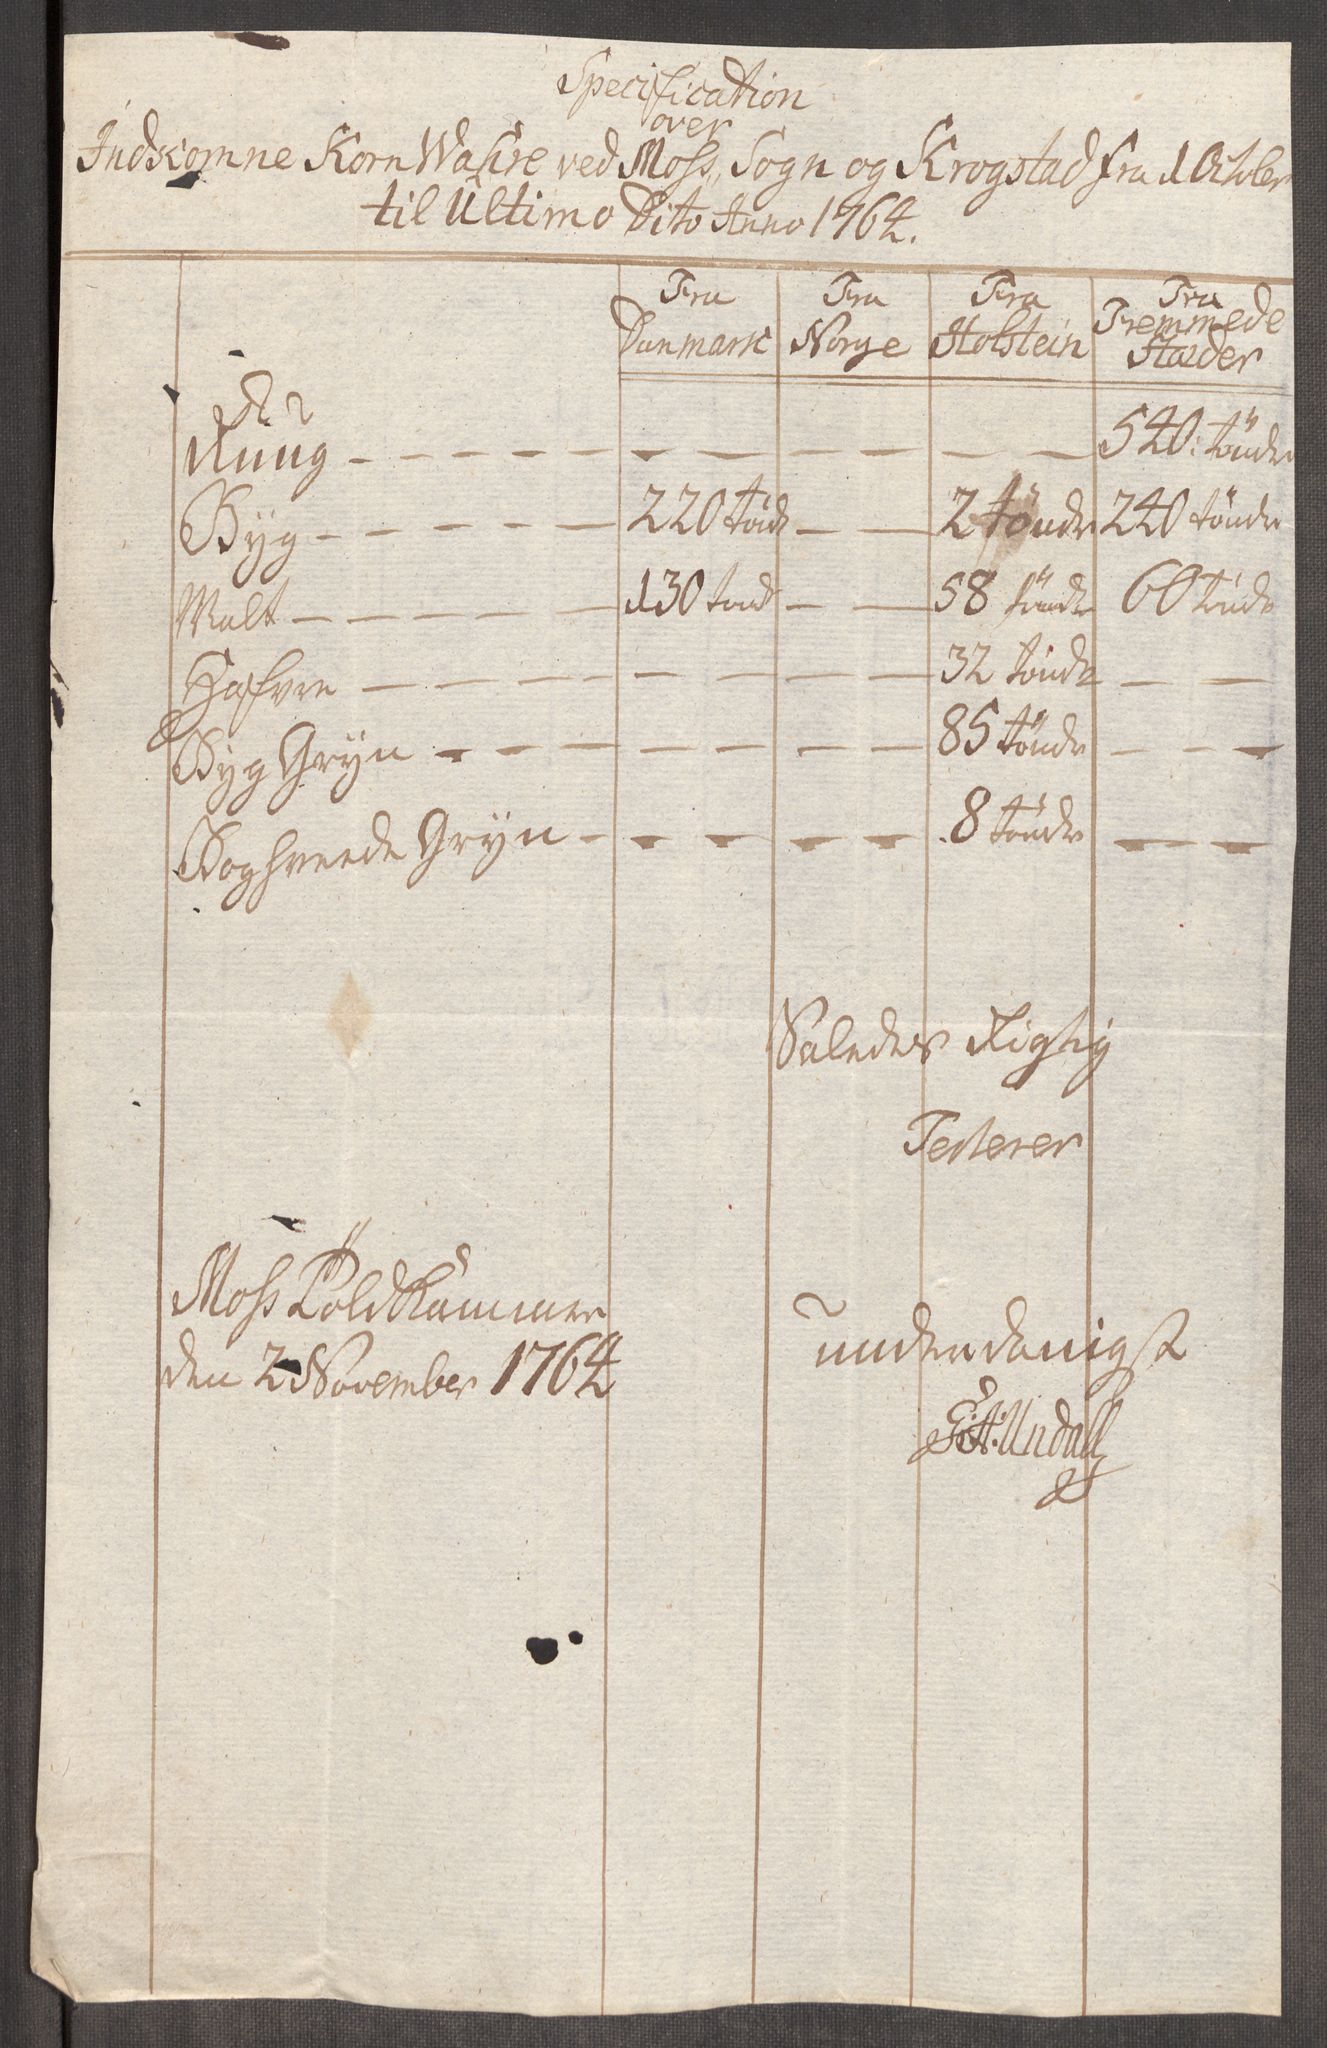 Specification
over
Indkomne Korn Wahre ved Moss, Sogn og Krogstad fra 1 October
til Ultimo Dito Anno 1764.
Fra Danmark Fra Norge Fra Holstein Fra Fremmede Stæder
Ruug — — — — — — — — — — 540: tönder
Byg — — — — 220 töndr — — 2 töndr 240 töndr
Malt — — — — 130 tönd — — 58 töndr 60 töndr
Hafvre — — — — — — — — 32 töndr — —
Byg Gryn — — — — — — — — 85 töndr — — —
Boghveede Gryn — — — — — 8 töndr — — —
Saledes Rigtig
Testerer
Moss Toldkammer
den 2 November 1764
underdanigst
Undall